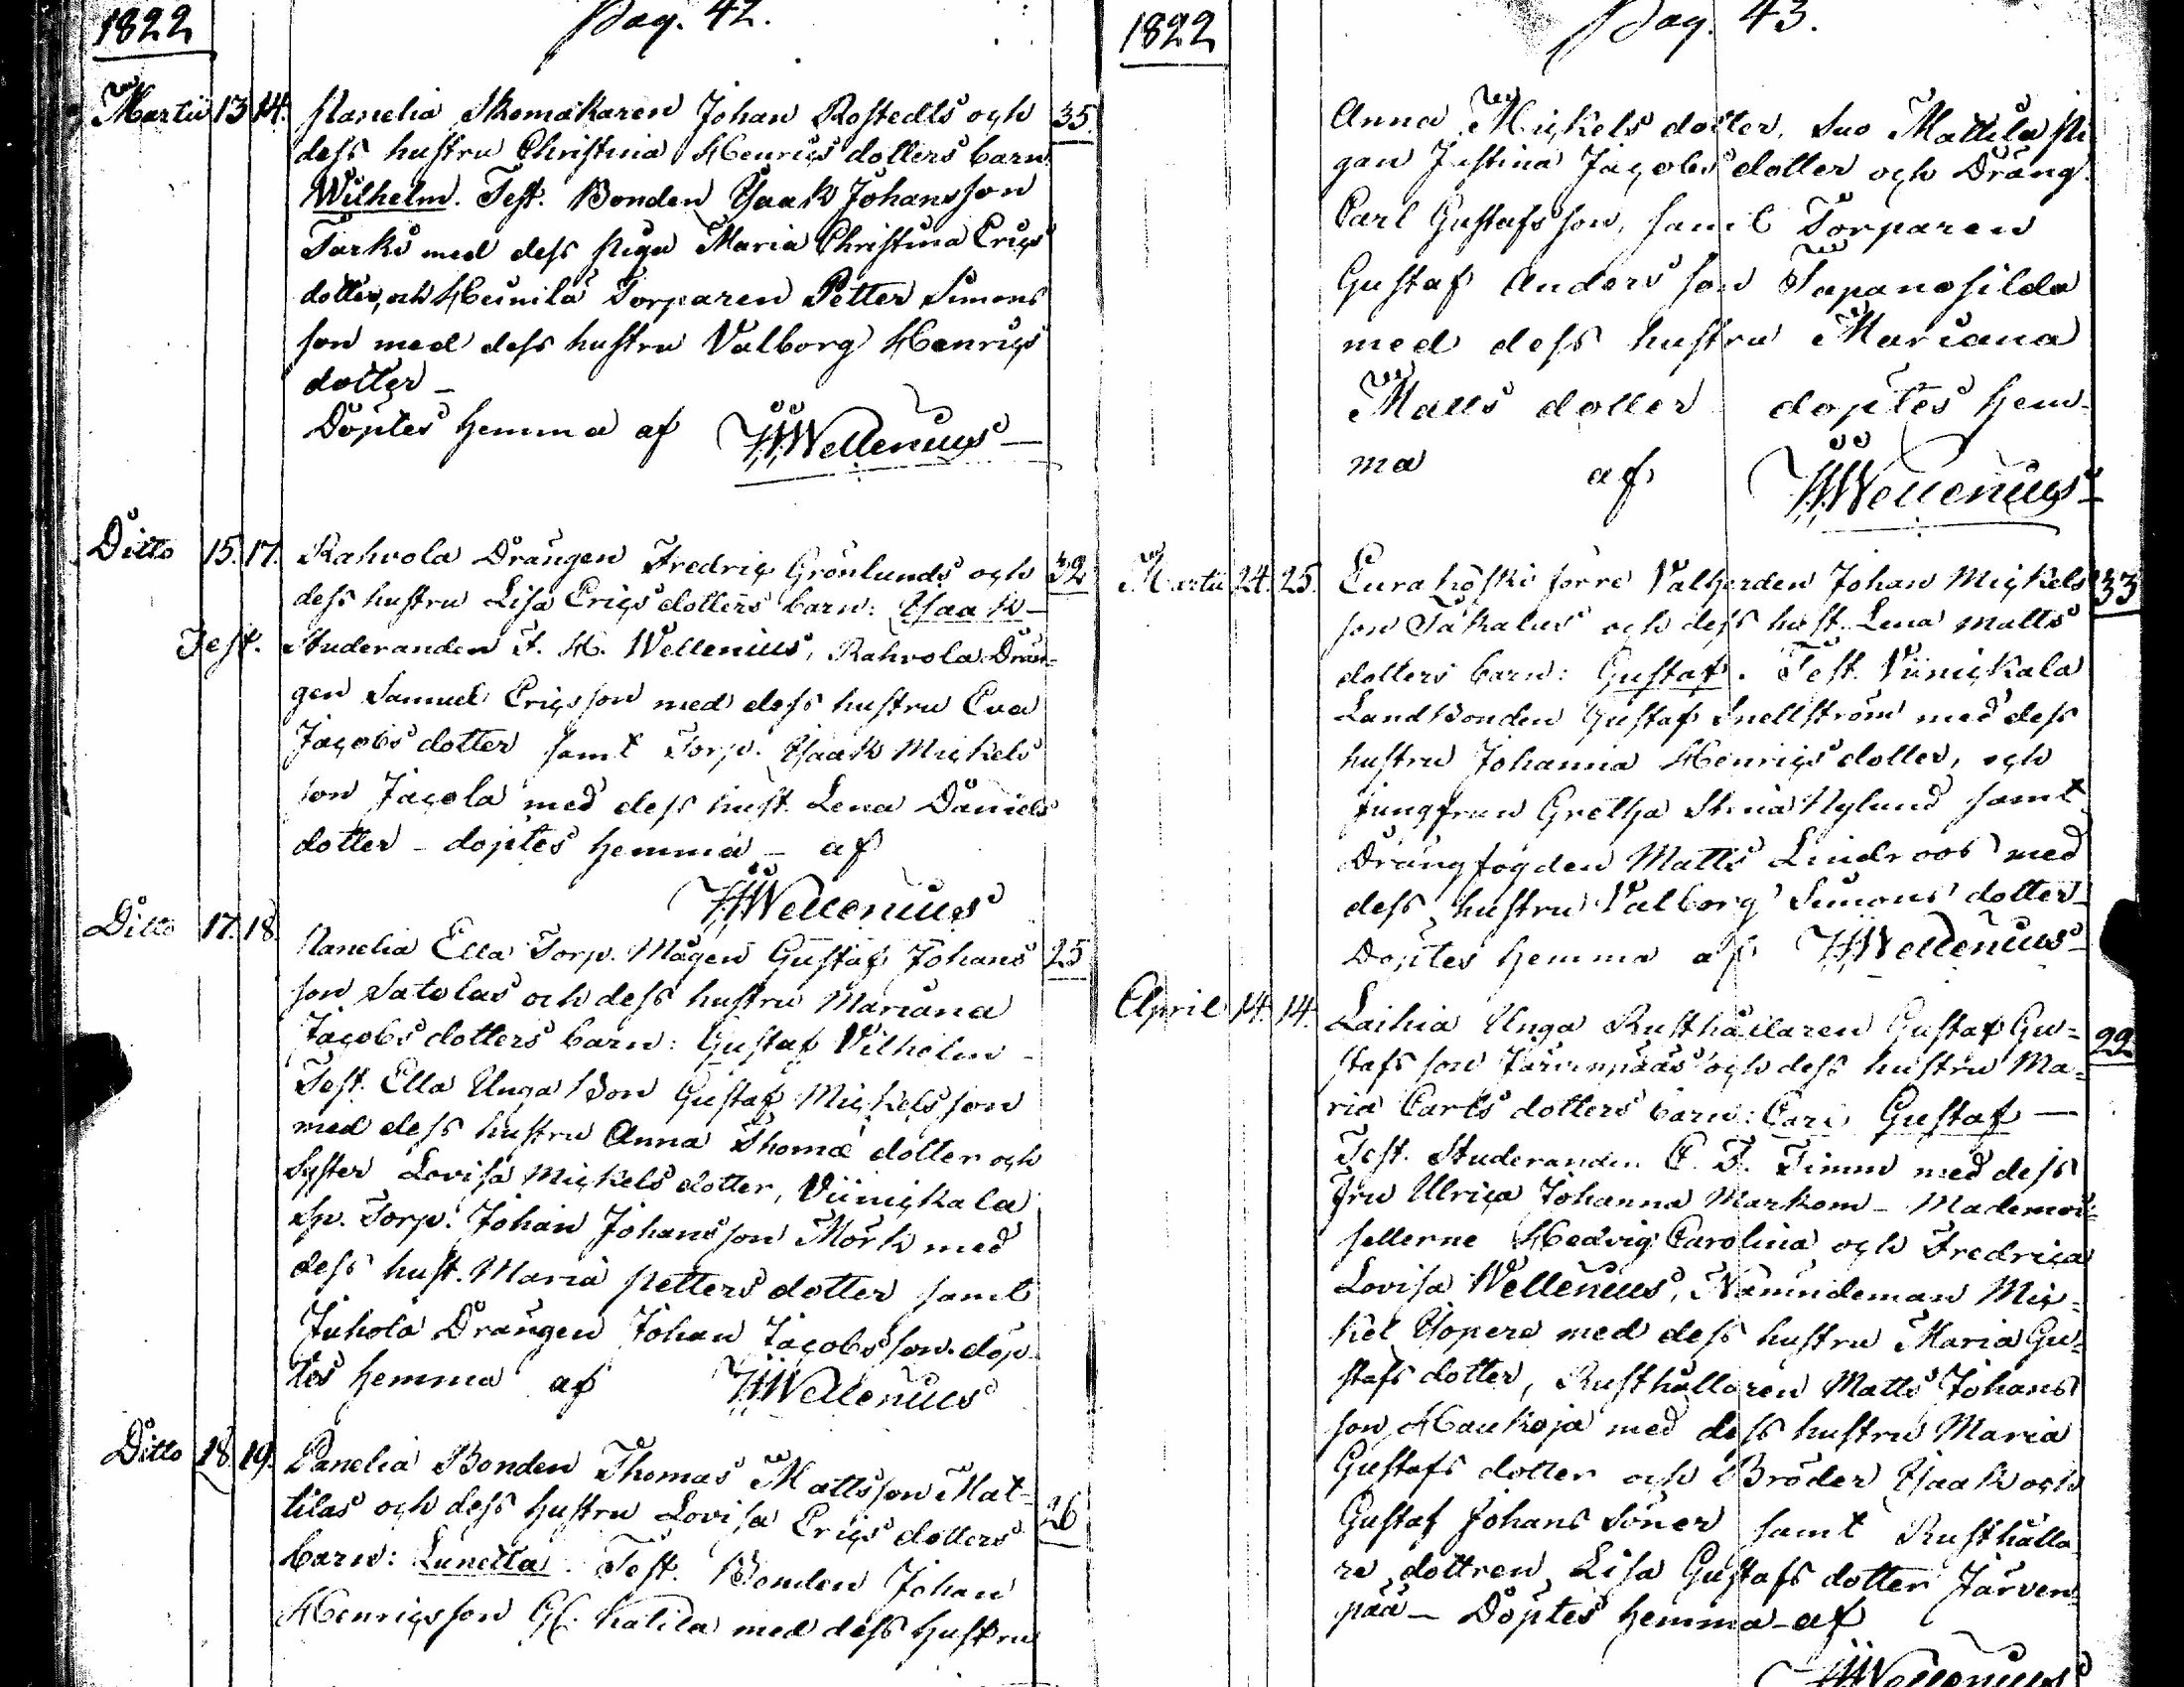 1822 Pag. 42.
Martii 13 14. Panelia Skomakaren Johan Rostedts och 35.
dess hustru Christina Henrics dotters barn
Wilhelm. Test. Bonden Ysaak Johansson
Tarki med dess piga Maria Christina Erics
dotter, och Heinilä Torparen Petter Simons
son med dess hustru Valborg Henrics
dotter –
Döptes hemma af HWellenius
Ditto 15. 17. Rahvola Drängen Fredric Grönlunds och 32
dess hustru Lisa Erics dotters barn: Ysaak –
Test. Studeranden F. H. Wellenius, Rahvola Drän=
gen Samuel Ericsson med dess hustru Eva
Jacobs dotter samt Torp. Ysaak Mickels
son Jacola med dess hust. Lena Daniels
dotter – döptes hemma – af
HWellenius
Ditto 17. 18. Panelia Ella Torp. Mågen Gustaf Johans 25
son Satolas och dess hustru Mariana
Jacobs dotters barn: Gustaf Vilhelm –
Test. Ella Unga Bon Gustaf Mickelsson
med dess hustru Anna Thomæ dotter och
Syster Lovisa Mickels dotter, Viinickala
Sp. Torp. Johan Johansson Mörk med
dess hust. Maria Petters dotter samt
Juhola Drängen Johan Jacobsson. döp
tes hemma af HWellenius
Ditto 18. 19. Panelia Bonden Thomas Mattsson Mat=
tilas och dess hustru Lovisa Erics dotters 26
barn: Lunetta. Test. Bonden Johan
Henricsson Katila med dess hustru
1822 Pag. 43.
Anna Mickels dotter, Suo Mattila pi
gan Justina Jacobs dotter och Dräng.
Carl Gustafsson, samt Torparen
Gustaf Andersson Tapanosilda
med dess hustru Mariana
Matts dotter döptes hem-
ma af HWellenius
Martii 24. 25. Eurakoski förre Valherden Johan Mickels 33
son Takalus och dess hust. Lena Matts
dotters barn: Gustaf. Test. Viinickala
Landbonden Gustaf Snellström med dess
hustru Johanna Henrics dotter, och
jungfrun Gretha Stina Nylund samt
Drängfogden Matts Lindroos med
dess hustru Valborg Simons dotter –
Döptes hemma af HWellenius
April 14. 14. Laihia Unga Rusthållaren Gustaf Gu=
stafsson Järvenpääs och dess hustru Ma= 22
ria Carls dotters barn: Carl Gustaf –
Test. Studeranden C. F. Timm med dess
Fru Ulrica Johanna Markom – Mademoi=
sellerne Hedvig Carolina och Fredrica
Lovisa Wellenius, Nämndeman Mic=
kel Yopere med dess hustru Maria Gu=
stafs dotter, Rusthållaren Matts Johans
son Haukoja med dess hustru Maria
Gustafs dotter och Bröder Ysaak och
Gustaf Johans Söner samt Rusthålla
re dottren Lisa Gustafs dotter Järven=
pää – Döptes hemma – af
HWellenius